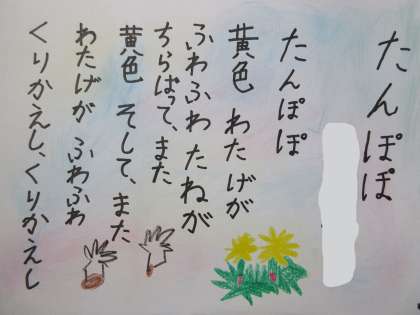 たんぽぽ
たんぽぽ
黄色 わたげが
ふわふわ たねが
ちらばって、また
黄色 そして、また、
わたげが ふわふわ
くりかえし、くりかえし